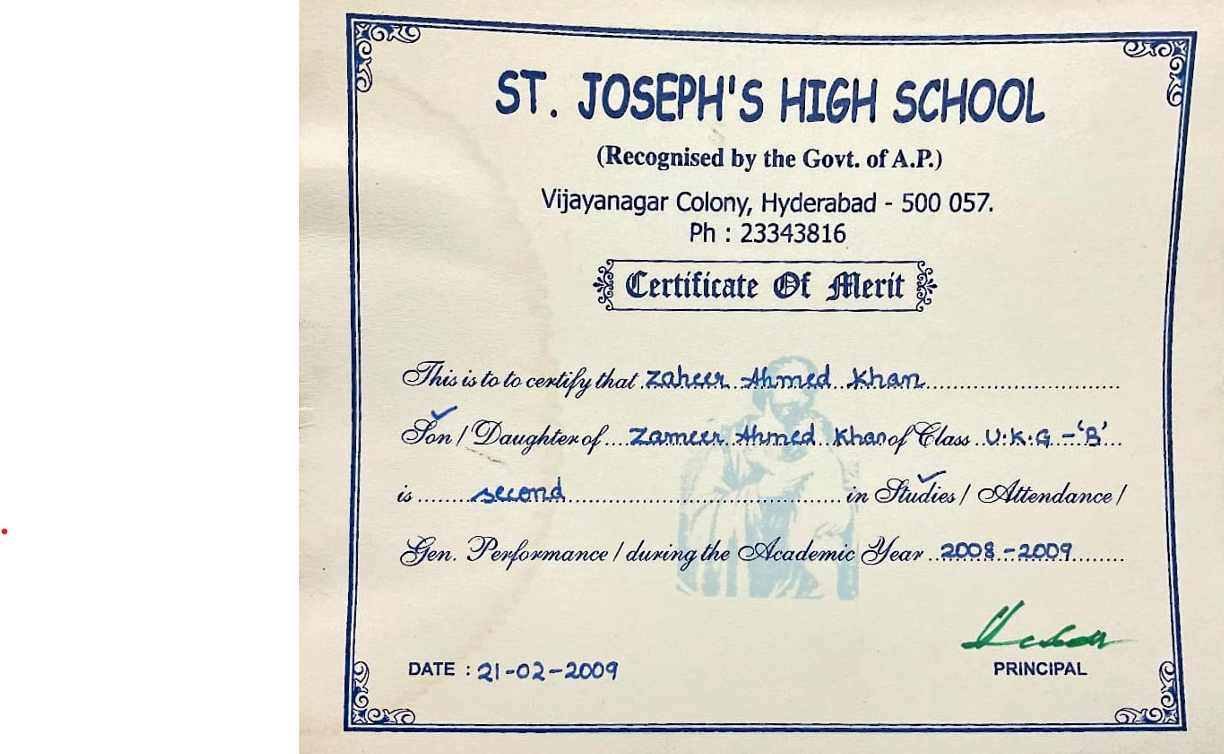 ST. JOSEPH'S HIGH SCHOOL
(Recognised by the Govt. of A.P.)
Vijayanagar Colony, Hyderabad - 500 057.
Ph : 23343816
Certificate Of Merit
This is to to certify that Zaheer Ahmed Khan
Son / Daughter of Zameer Ahmed Khan of Class U.K.G - 'B'
is second in Studies / Attendance /
Gen. Performance / during the Academic Year 2008 - 2009
DATE : 21-02-2009
PRINCIPAL